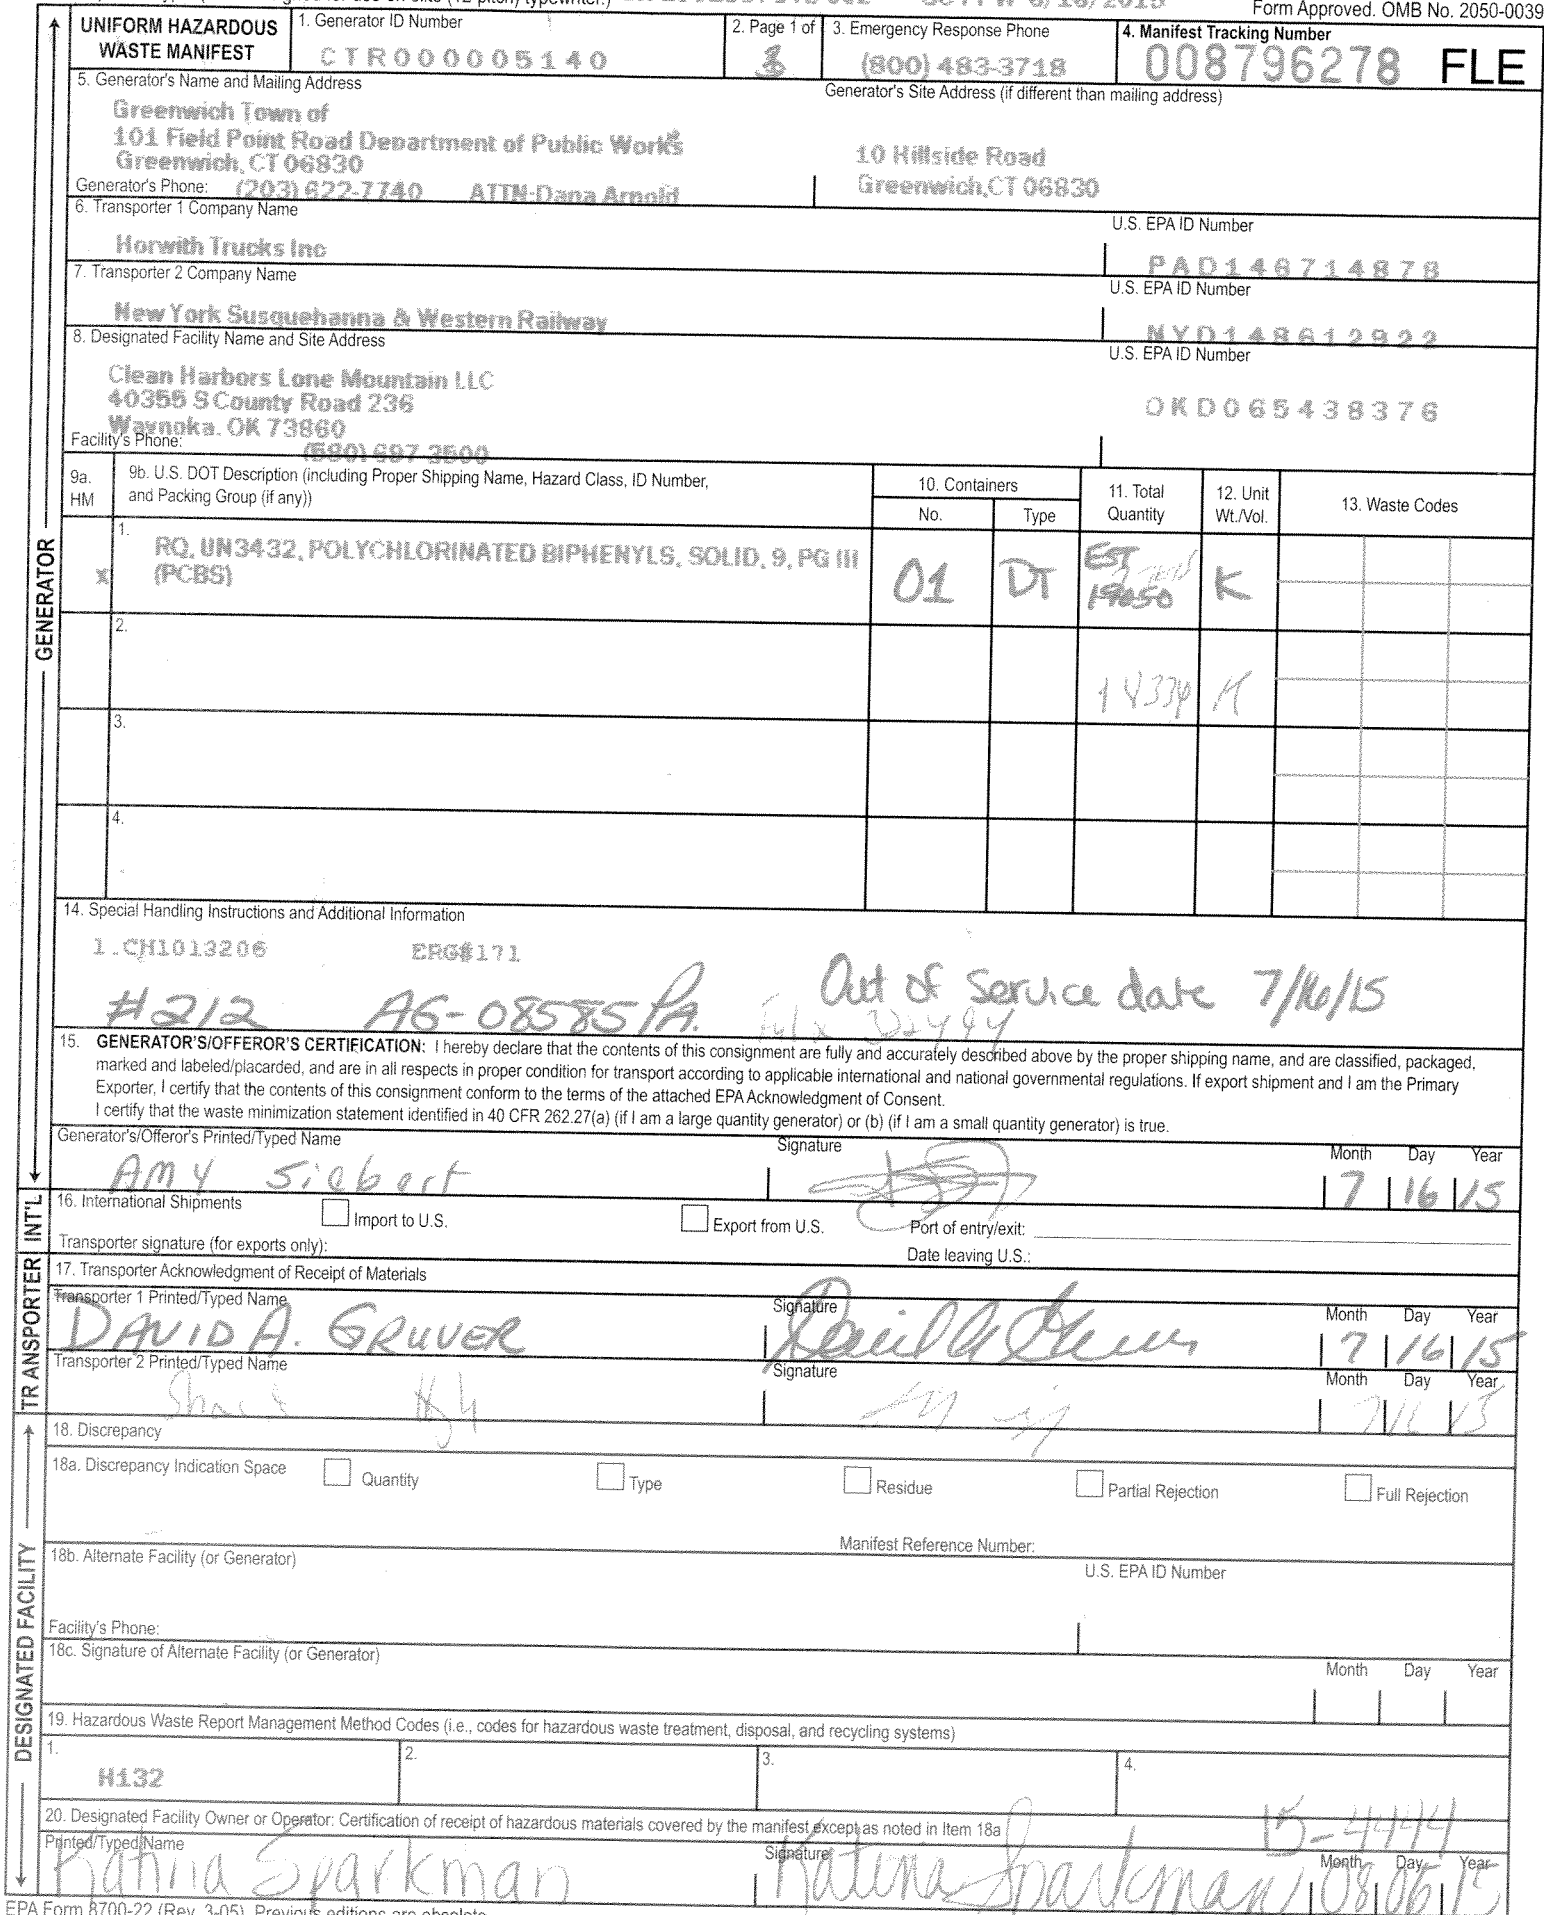 Form Approved. OMB No. 2050-0039
UNIFORM HAZARDOUS WASTE MANIFEST
1. Generator ID Number
CTR000005140
2. Page 1 of
3. Emergency Response Phone
(800) 483-3718
4. Manifest Tracking Number
008796278 FLE
5. Generator's Name and Mailing Address
Generator's Site Address (if different than mailing address)
Greenwich Town of
101 Field Point Road Department of Public Works
Greenwich, CT 06830
10 Hillside Road
Greenwich,CT 06830
Generator's Phone: (203) 622-7740 ATTN:Dana Arnold
6. Transporter 1 Company Name
U.S. EPA ID Number
Horwith Trucks Inc
PAD146714878
7. Transporter 2 Company Name
U.S. EPA ID Number
New York Susquehanna & Western Railway
NYD148612922
8. Designated Facility Name and Site Address
U.S. EPA ID Number
Clean Harbors Lone Mountain LLC
40355 S County Road 236
Waynoka, OK 73860
OKD065438376
Facility's Phone: (580) 697-3500
9a. HM
9b. U.S. DOT Description (including Proper Shipping Name, Hazard Class, ID Number,
and Packing Group (if any))
10. Containers
No. Type
11. Total Quantity
12. Unit Wt./Vol.
13. Waste Codes
GENERATOR
1.
x RQ, UN3432, POLYCHLORINATED BIPHENYLS, SOLID, 9, PG III
(PCBS)
01 DT EST K
2.
14334 K
3.
4.
14. Special Handling Instructions and Additional Information
1.CH1013206 ERG#171
#212 AG-08585 PA. Out of Service date 7/16/15
15. GENERATOR'S/OFFEROR'S CERTIFICATION: I hereby declare that the contents of this consignment are fully and accurately described above by the proper shipping name, and are classified, packaged,
marked and labeled/placarded, and are in all respects in proper condition for transport according to applicable international and national governmental regulations. If export shipment and I am the Primary
Exporter, I certify that the contents of this consignment conform to the terms of the attached EPA Acknowledgment of Consent.
I certify that the waste minimization statement identified in 40 CFR 262.27(a) (if I am a large quantity generator) or (b) (if I am a small quantity generator) is true.
Generator's/Offeror's Printed/Typed Name Signature Month Day Year
Amy Siebert 7 16 15
INT'L
16. International Shipments Import to U.S. Export from U.S. Port of entry/exit:
Transporter signature (for exports only): Date leaving U.S.:
TRANSPORTER
17. Transporter Acknowledgment of Receipt of Materials
Transporter 1 Printed/Typed Name Signature Month Day Year
DAVID A. GRUVER David A Gruver 7 16 15
Transporter 2 Printed/Typed Name Signature Month Day Year
DESIGNATED FACILITY
18. Discrepancy
18a. Discrepancy Indication Space Quantity Type Residue Partial Rejection Full Rejection
Manifest Reference Number:
18b. Alternate Facility (or Generator) U.S. EPA ID Number
Facility's Phone:
18c. Signature of Alternate Facility (or Generator) Month Day Year
19. Hazardous Waste Report Management Method Codes (i.e., codes for hazardous waste treatment, disposal, and recycling systems)
1. 2. 3. 4.
H132
15-4444
20. Designated Facility Owner or Operator: Certification of receipt of hazardous materials covered by the manifest except as noted in Item 18a
Printed/Typed Name Signature Month Day Year
Katrina Sparkman Katrina Sparkman 08 06 15
EPA Form 8700-22 (Rev. 3-05) Previous editions are obsolete.